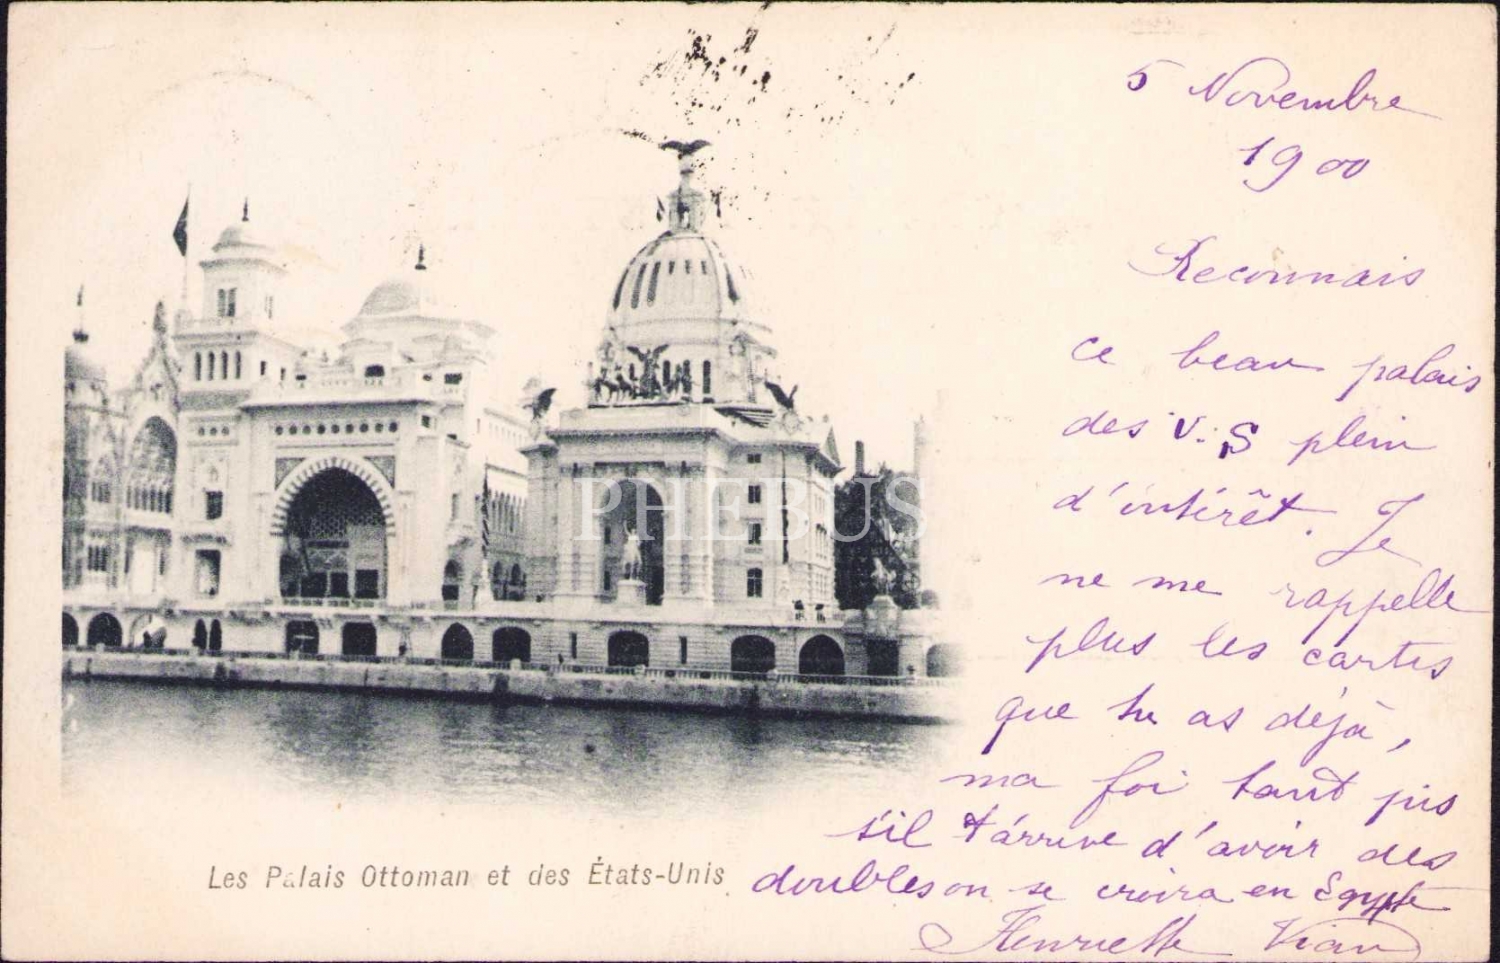 5 Novembre
1900
Reconnais
ce beau palais
des V. S plein
d'intérêt. Je
ne me rappelle
plus les cartes
que tu as déjà,
ma foi tant pis
s'il t'arrive d'avoir des
doubles on se croira en Egypte
Henriette Vian
PHEBUS
Les Palais Ottoman et des États-Unis